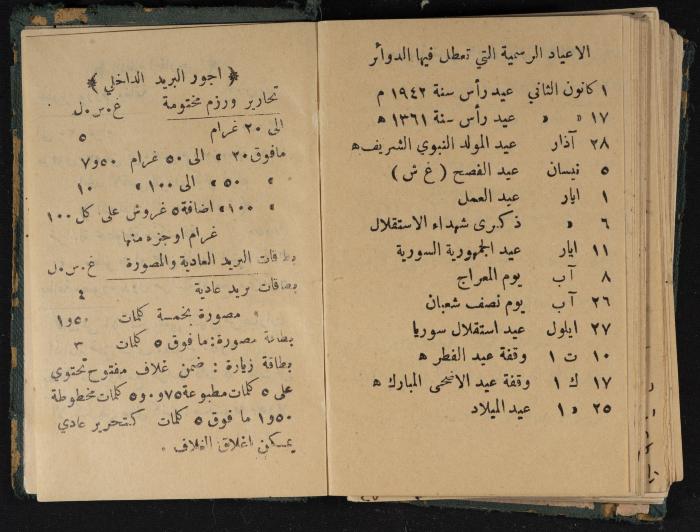 الاعياد الرسمية التي تعطل فيها الدوائر
١ كانون الثاني عيد رأس سنة ١٩٤٢ م
١٧ » » عيد رأس سنة ١٣٦١ ھ
٢٨ آذار عيد المولد النبوي الشريف ھ
٥ نيسان عيد الفصح ( غ ش )
١ ايار عيد العمل
٦ » ذكرى شهداء الاستقلال
١١ ايار عيد الجمهورية السورية
٨ آب يوم المعراج
٢٦ آب يوم نصف شعبان
٢٧ ايلول عيد استقلال سوريا
١٠ ت ١ وقفة عيد الفطر ھ
١٧ ك ١ وقفة عيد الاضحى المبارك ھ
٢٥ » ١ عيد الميلاد
﴿ اجور البريد الداخلي ﴾
تحارير ورزم مختومة غ.س.ل
الى ٢٠ غرام ٥
مافوق ٢٠ » الى ٥٠ غرام ٧و٥٠
» ٥٠ » الى ١٠٠ » ١٠
» ١٠٠ » اضافة ٥ غروش على كل ١٠٠
غرام اوجزء منها
بطاقات البريد العادية والمصورة غ.س.ل
بطاقات بريد عادية ٤
» مصورة بخمسة كلمات ١و٥٠
بطاقة مصورة: ما فوق ٥ كلمات ٣
بطاقة زيارة : ضمن غلاف مفتوح تحتوي
على ٥ كلمات مطبوعة ٧٥و٠ و٥ كلمات مخطوطة
١و٥٠ ما فوق ٥ كلمات كتحرير عادي
يمسكن اغلاق الغلاف .